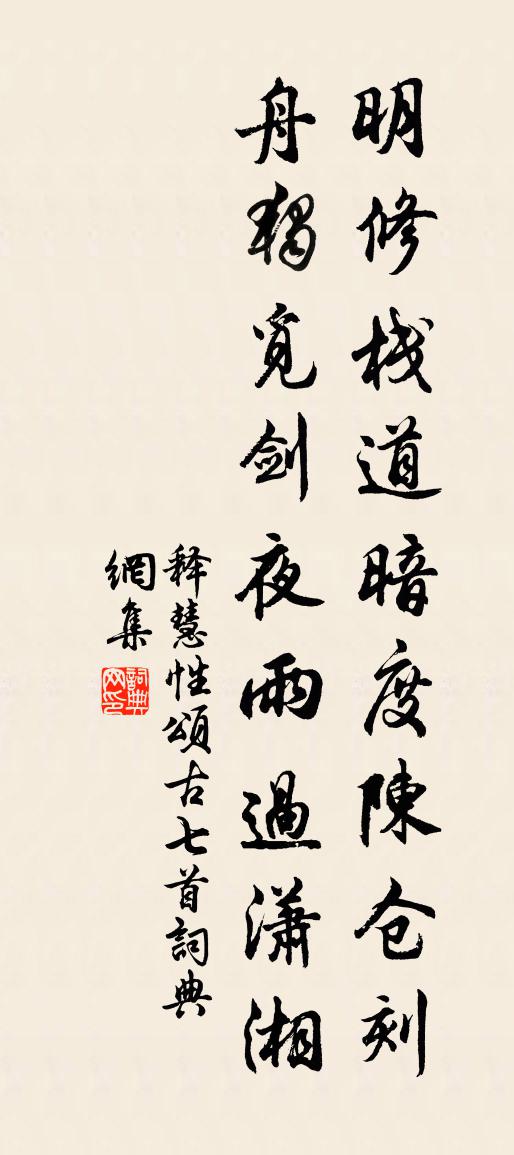 明修栈道暗度陳仓刻
舟独覓剑夜雨過潇湘
释慧性頌古七首詞典
網集
詞典
网印